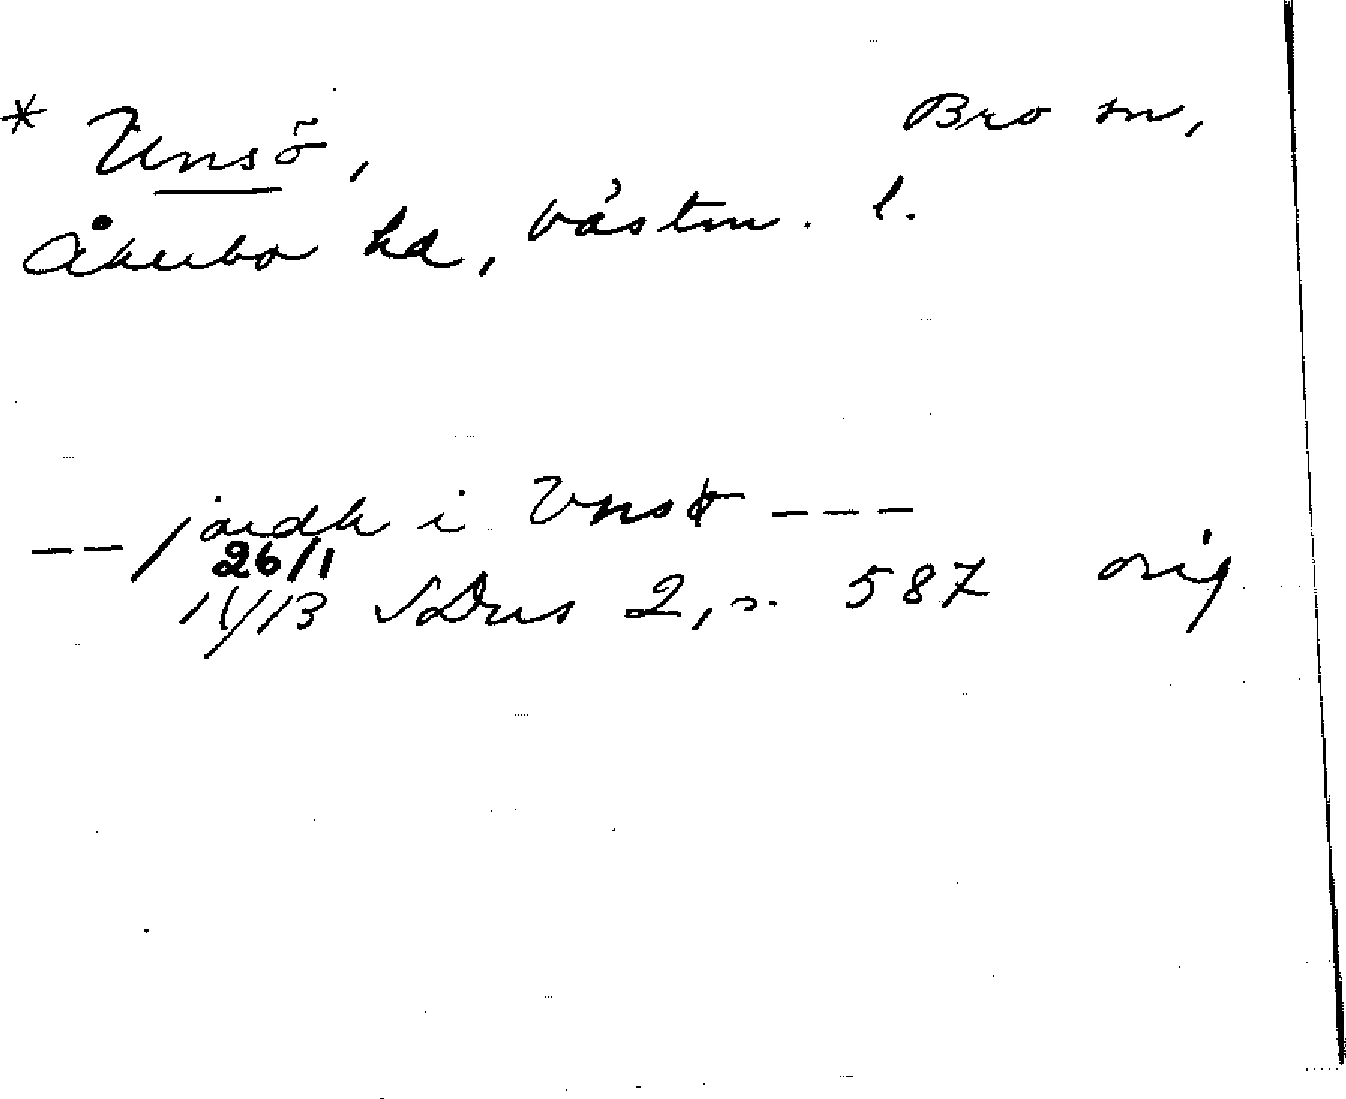 * Unsö, Bro sn,
Åkerbo hd, Västm. l.
-- / jordh i Vnsø ---
26/1
1413 SDns 2, s. 587 orig